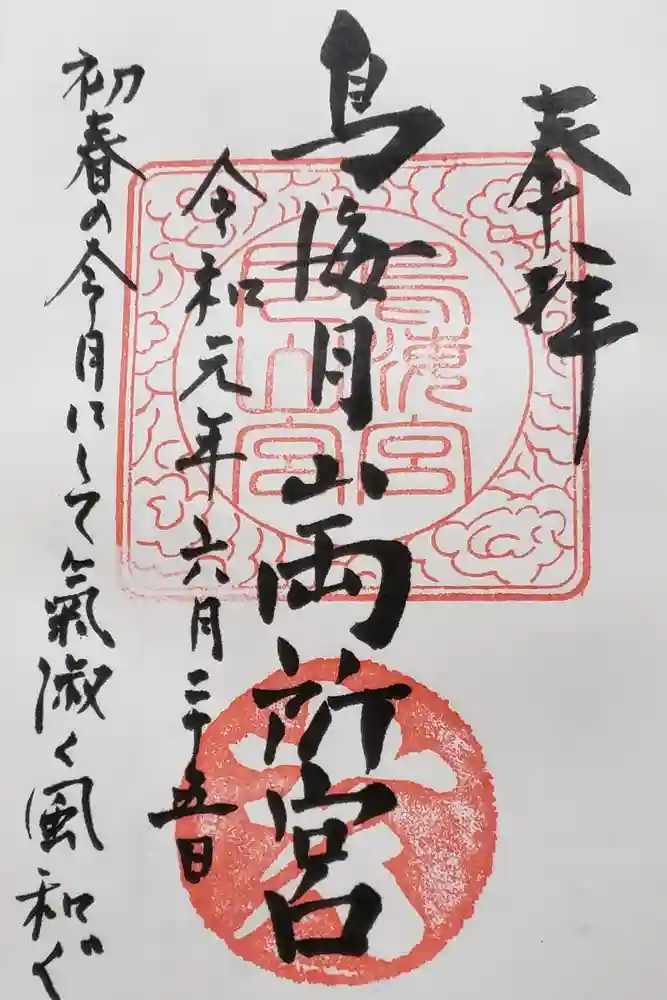 奉拝
鳥海月山両所宮
令和元年六月二十五日
初春の令月にして氣淑く風和ぐ
鳥海宮
月山宮